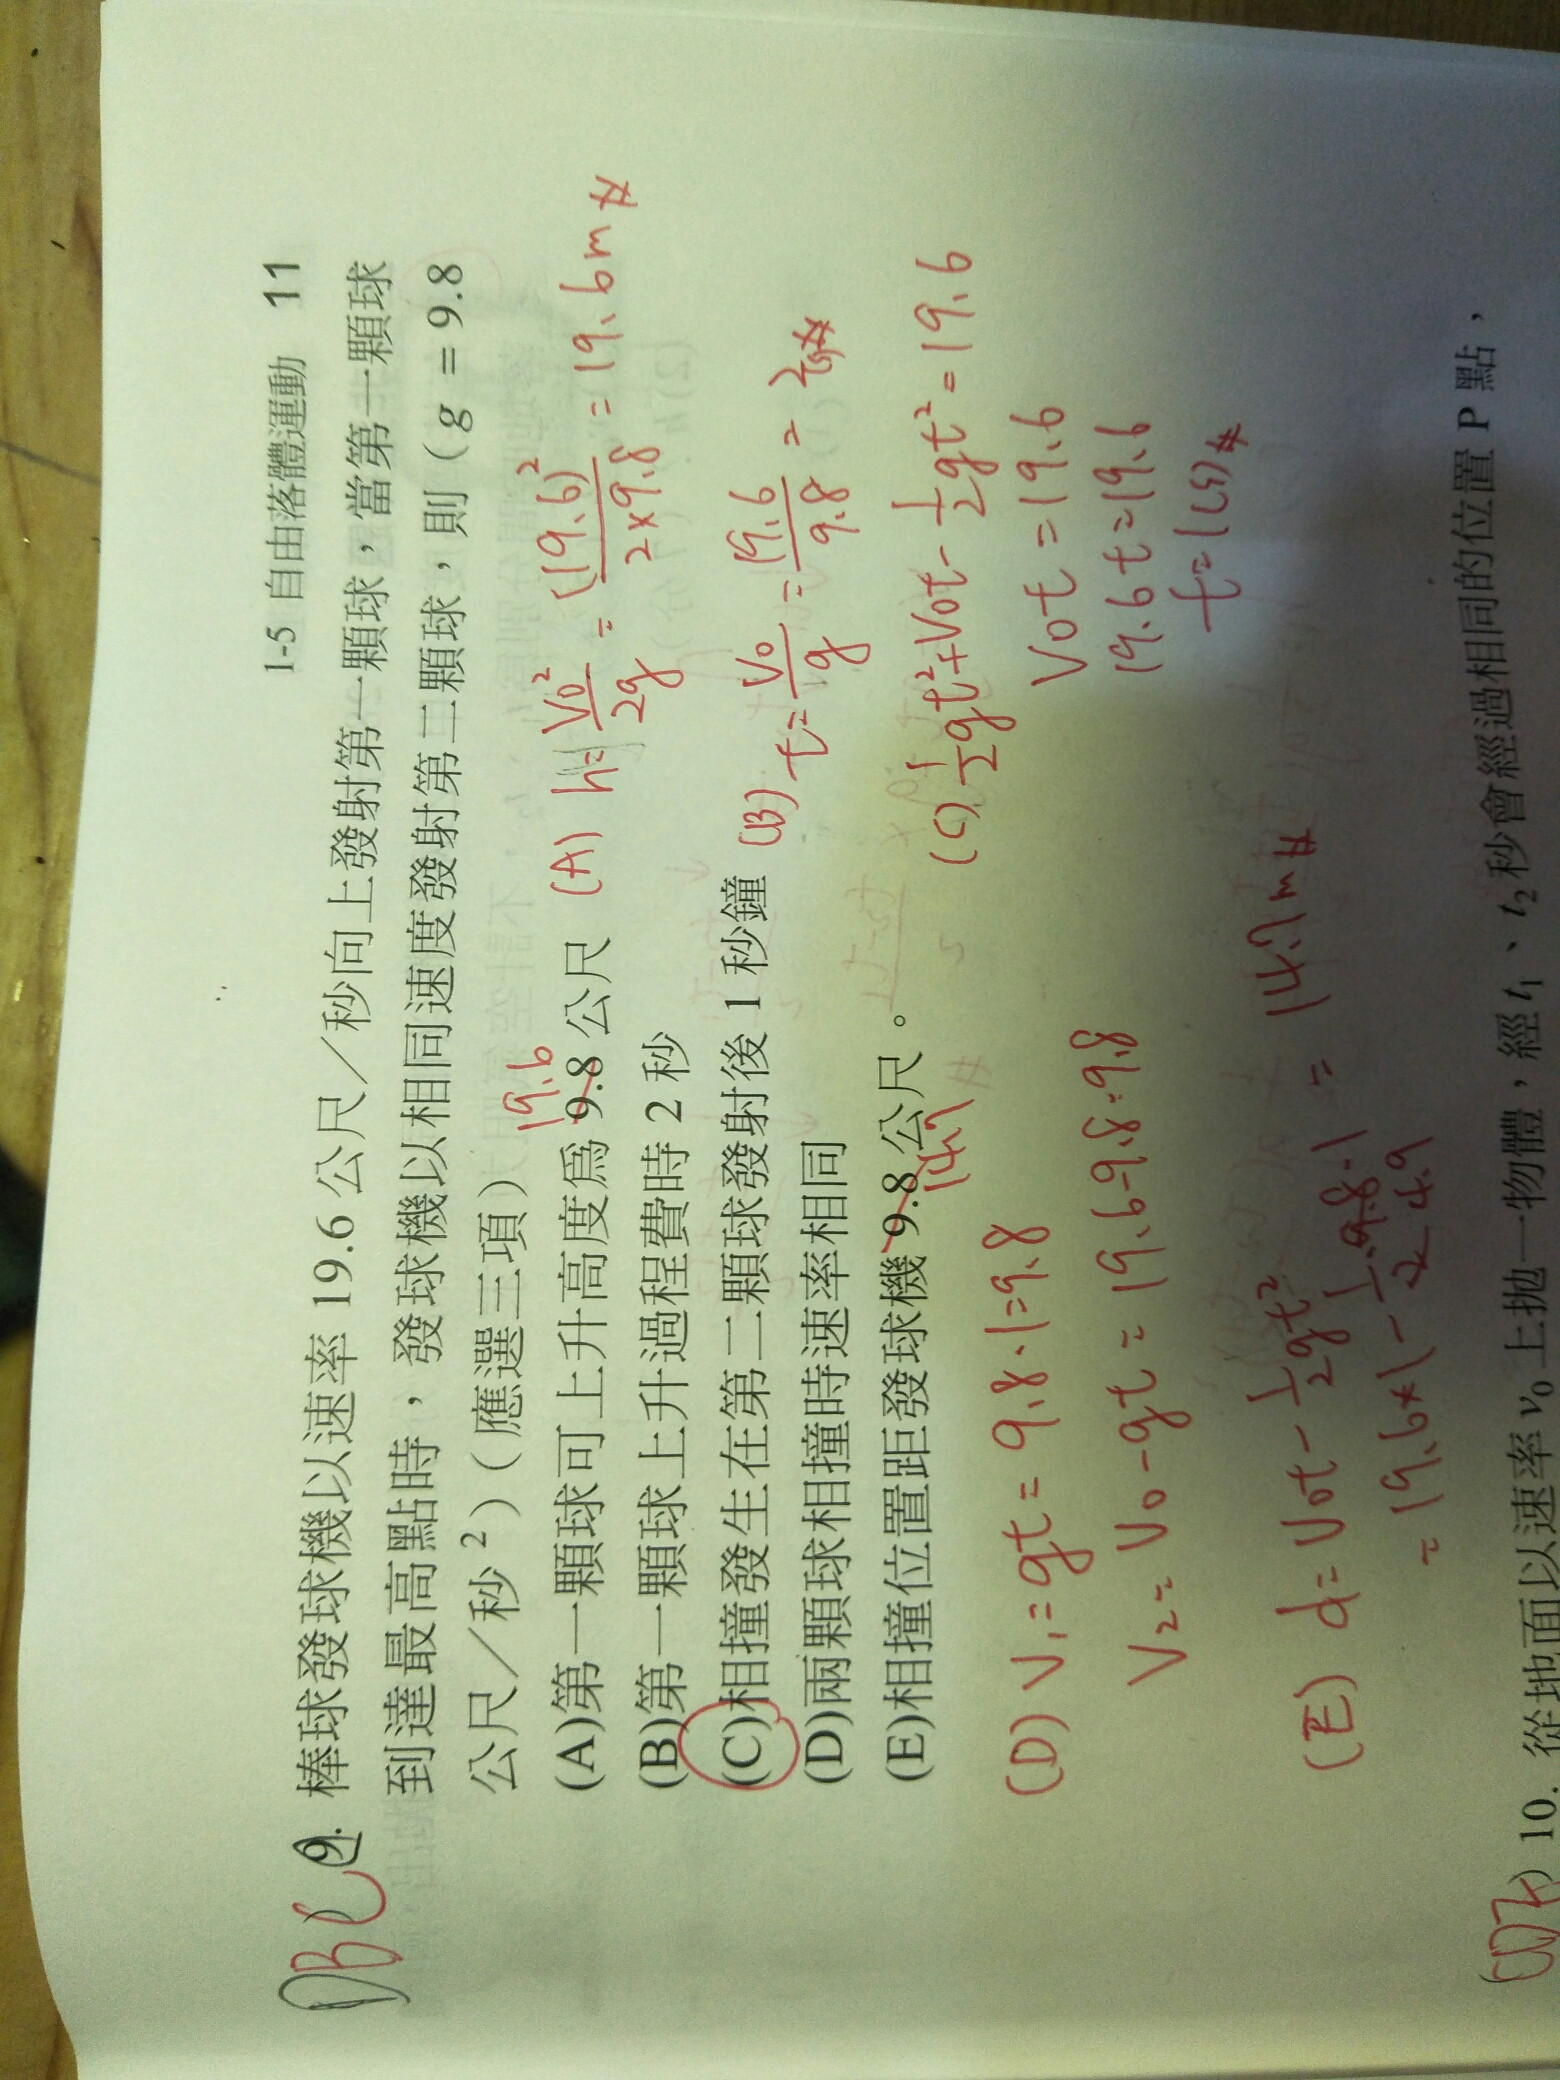 1-5 自由落體運動 11
BC
9. 棒球發球機以速率 19.6 公尺／秒向上發射第一顆球，當第一顆球
到達最高點時，發球機以相同速度發射第二顆球，則（g = 9.8
公尺／秒²）（應選三項）
19.6
(A)第一顆球可上升高度爲 9.8 公尺
(B)第一顆球上升過程費時 2 秒
(C)相撞發生在第二顆球發射後 1 秒鐘
(D)兩顆球相撞時速率相同
(E)相撞位置距發球機 9.8 公尺。
14.7
(A) h = V₀²/2g = (19.6)²/2×9.8 = 19.6m #
(B) t = V₀/g = 19.6/9.8 = 2(s) #
(C) ½gt² + V₀t - ½gt² = 19.6
V₀t = 19.6
19.6t = 19.6
t = 1(s) #
(D) V₁ = gt = 9.8·1 = 9.8
V₂ = V₀ - gt = 19.6 - 9.8 = 9.8
(E) d = V₀t - ½gt²
= 19.6×1 - ½·9.8·1 = 14.7m #
4.9
) 10. 從地面以速率 v₀ 上拋一物體，經 t₁、t₂ 秒會經過相同的位置 P 點，